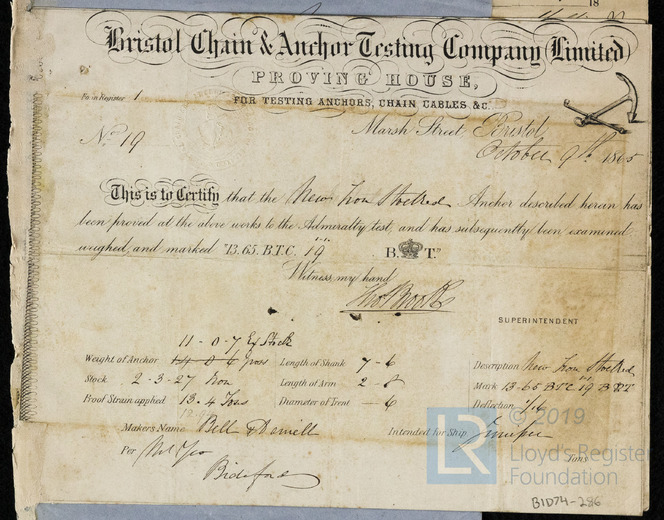 18
Bristol Chain & Anchor Testing Company Limited
PROVING HOUSE,
FOR TESTING ANCHORS, CHAIN CABLES, &C.
Fo. in Register 1
No. 19
Marsh Street Bristol
October 9th 1865
This is to Certify that the New Iron Stocked Anchor described herein has
been proved at the above works to the Admiralty test, and has subsequently been examined
weighed, and marked "13.65. B.T.C. 19 B. T."
Witness, my hand
Thos Booth
SUPERINTENDENT
11-0-7 Ex Stock
Weight of Anchor 14 0 6 gross Length of Shank 7-6 Description New Iron Stocked
Stock 2-3-27 Iron Length of Arm 2-8 Mark 13-65 BTC 19 B T
Proof Strain applied 13.4 Tons Diameter of Trent -6 Deflection 1/16
Makers Name Bell Intended for Ship Juniper
Per Tons
Bideford
© 2019.
LR Lloyd's Register
Foundation
BID74-286